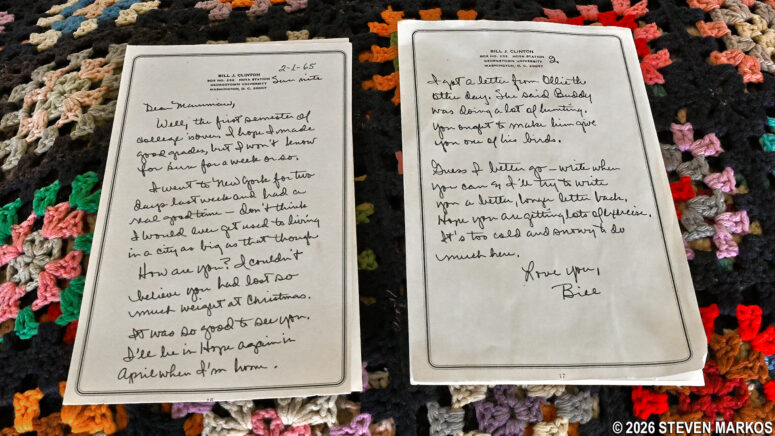 BILL J. CLINTON
BOX NO. 232 HOYA STATION
GEORGETOWN UNIVERSITY
WASHINGTON, D. C. 20007
2-1-65
Sun nite
Dear Mammaw,
Well, the first semester of
college is over. I hope I made
good grades, but I won't know
for sure for a week or so.
I went to New York for two
days last week and had a
real good time — don't think
I would ever get used to living
in a city as big as that though
How are you? I couldn't
believe you had lost so
much weight at Christmas.
It was so good to see you.
I'll be in Hope again in
April when I'm home.
BILL J. CLINTON
BOX NO. 232 HOYA STATION
GEORGETOWN UNIVERSITY
WASHINGTON, D. C. 20007
2
I got a letter from Ollie the
other day. She said Buddy
was doing a lot of hunting.
You ought to make him give
you one of his birds.
Guess I better go — write when
you can & I'll try to write
you a better, longer letter back.
Hope you are getting lots of exercise.
It's too cold and snowy to do
much here.
Love you,
Bill
17
©2026 STEVEN MARKOS